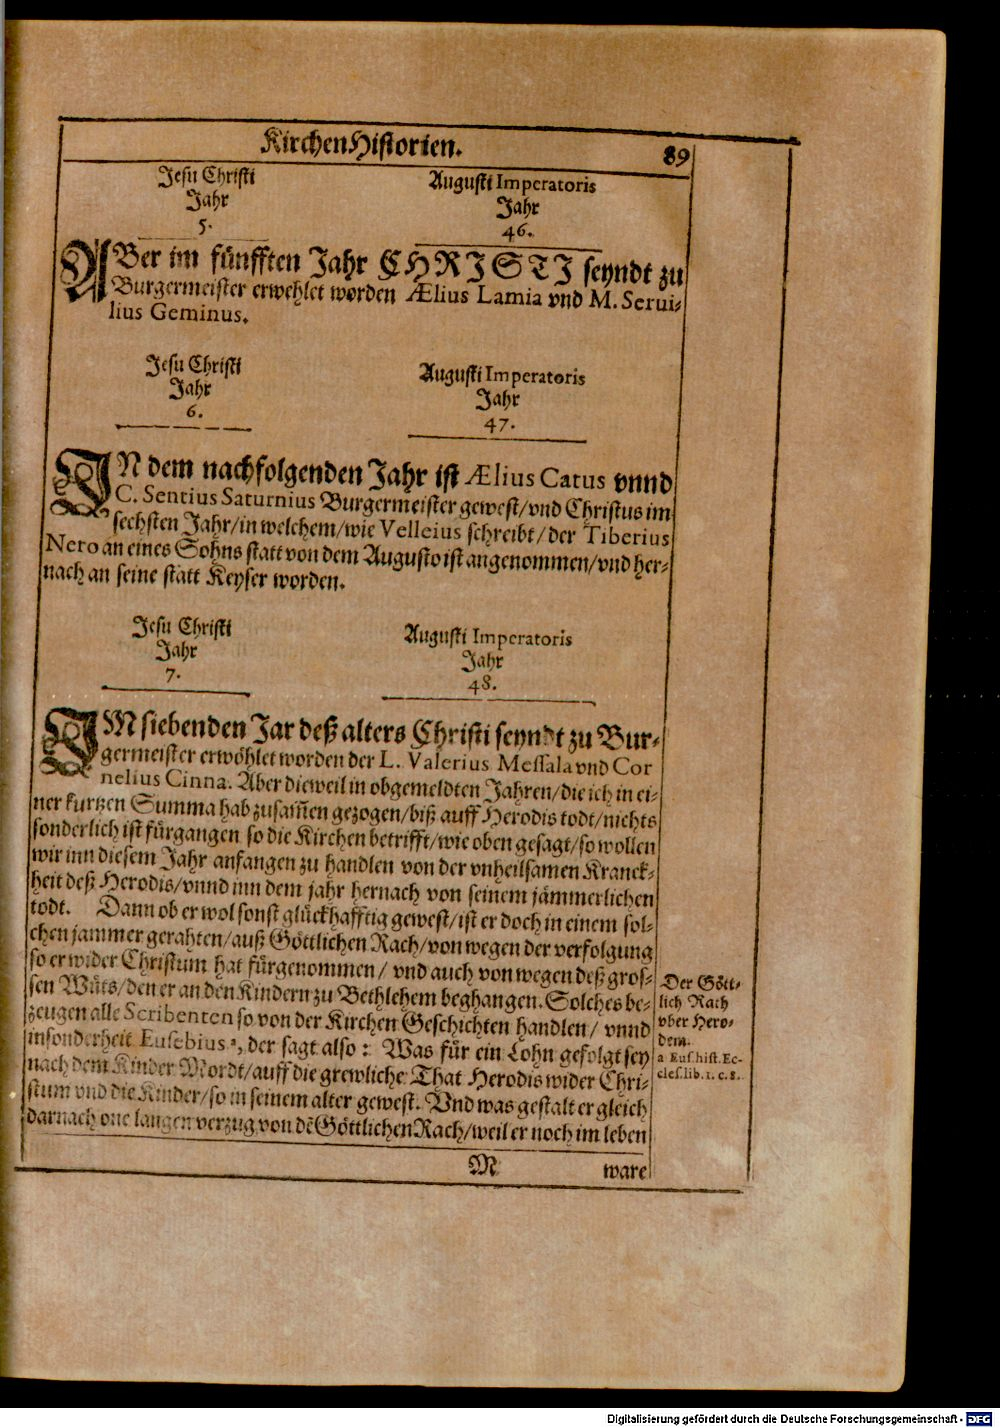 KirchenHistorien.
89
Jesu Christi
Jahr
5.
Augusti Imperatoris
Jahr
46.
ABer im fünfften Jahr CHRISTI seyndt zu
Burgermeister erwehlet worden Ælius Lamia vnd M. Serui-
lius Geminus.
Jesu Christi
Jahr
6.
Augusti Imperatoris
Jahr
47.
IN dem nachfolgenden Jahr ist Ælius Catus vnnd
C. Sentius Saturnius Burgermeister gewest/vnd Christus im
sechsten Jahr/in welchem/wie Velleius schreibt/der Tiberius
Nero an eines Sohns statt von dem Augusto ist angenommen/vnd her-
nach an seine statt Keyser worden.
Jesu Christi
Jahr
7.
Augusti Imperatoris
Jahr
48.
IM siebenden Jar deß alters Christi seyndt zu Bur-
germeister erwöhlet worden der L. Valerius Messala vnd Cor
nelius Cinna. Aber dieweil in obgemeldten Jahren/die ich in ei-
ner kurtzen Summa hab zusam̃en gezogen/biß auff Herodis todt/nichts
sonderlich ist fürgangen so die Kirchen betrifft/wie oben gesagt/so wollen
wir inn diesem Jahr anfangen zu handlen von der vnheilsamen Kranck-
heit deß Herodis/vnnd inn dem jahr hernach von seinem jämmerlichen
todt. Dann ob er wol sonst glückhafftig gewest/ist er doch in einem sol-
chen jammer gerahten/auß Göttlichen Rach/von wegen der verfolgung
so er wider Christum hat fürgenommen/ vnd auch von wegen deß gros-
sen Wüts/den er an den Kindern zu Bethlehem beghangen. Solches be-
zeugen alle Scribenten so von der Kirchen Geschichten handlen/ vnnd
insonderheit Eusebius a, der sagt also: Was für ein Lohn gefolgt sey
nach dem Kinder Mordt/auff die grewliche That Herodis wider Chri-
stum vnd die Kinder/so in seinem alter gewest. Vnd was gestalt er gleich
darnach one langen verzug von dẽ Göttlichen Rach/weil er noch im leben
Der Gött-
lich Rach
vber Hero-
dem.
a Eus. hist. Ec-
cles. lib. 1. c. 8.
M
ware
Digitalisierung gefördert durch die Deutsche Forschungsgemeinschaft - DFG